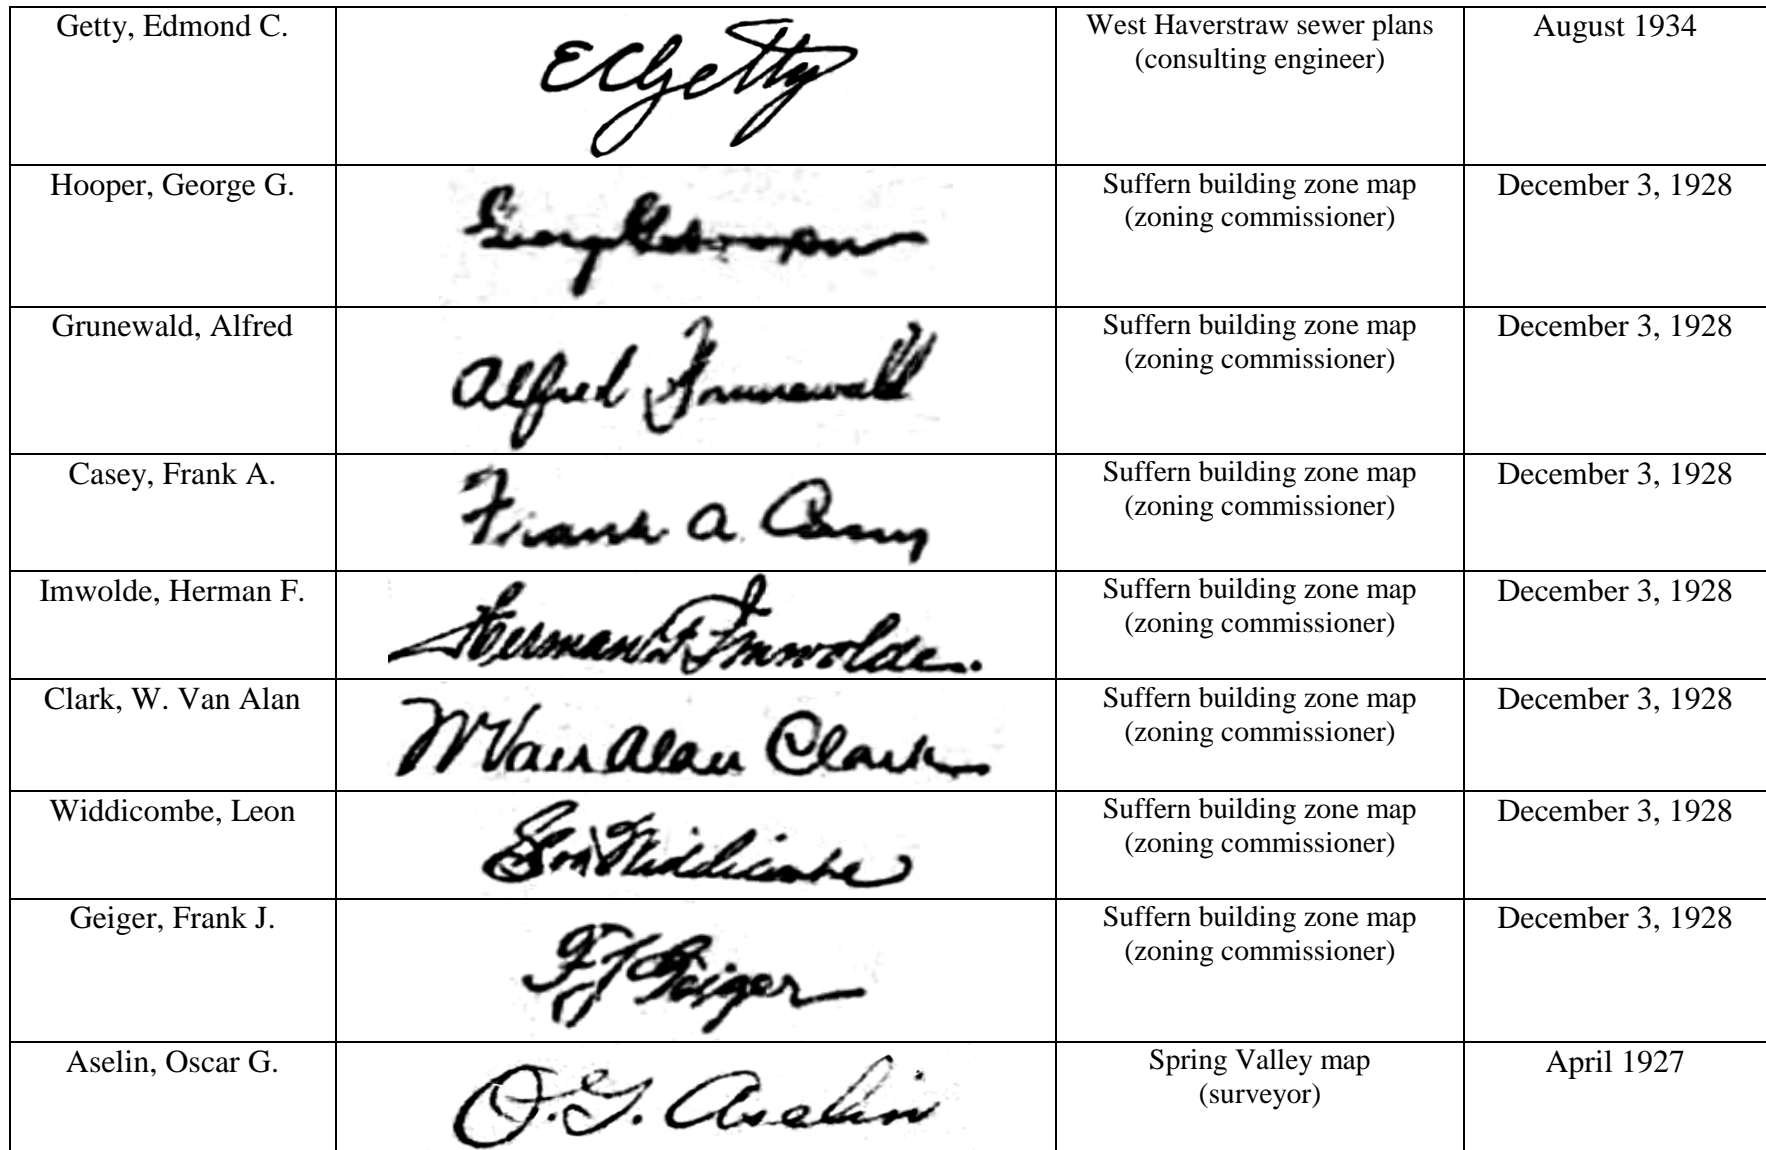 Getty, Edmond C.
ECGetty
West Haverstraw sewer plans
(consulting engineer)
August 1934
Hooper, George G.
George G Hooper
Suffern building zone map
(zoning commissioner)
December 3, 1928
Grunewald, Alfred
Alfred Grunewald
Suffern building zone map
(zoning commissioner)
December 3, 1928
Casey, Frank A.
Frank A. Casey
Suffern building zone map
(zoning commissioner)
December 3, 1928
Imwolde, Herman F.
Herman F Imwolde.
Suffern building zone map
(zoning commissioner)
December 3, 1928
Clark, W. Van Alan
W Van Alan Clark
Suffern building zone map
(zoning commissioner)
December 3, 1928
Widdicombe, Leon
Leon Widdicombe
Suffern building zone map
(zoning commissioner)
December 3, 1928
Geiger, Frank J.
F J Geiger
Suffern building zone map
(zoning commissioner)
December 3, 1928
Aselin, Oscar G.
O. G. Aselin
Spring Valley map
(surveyor)
April 1927